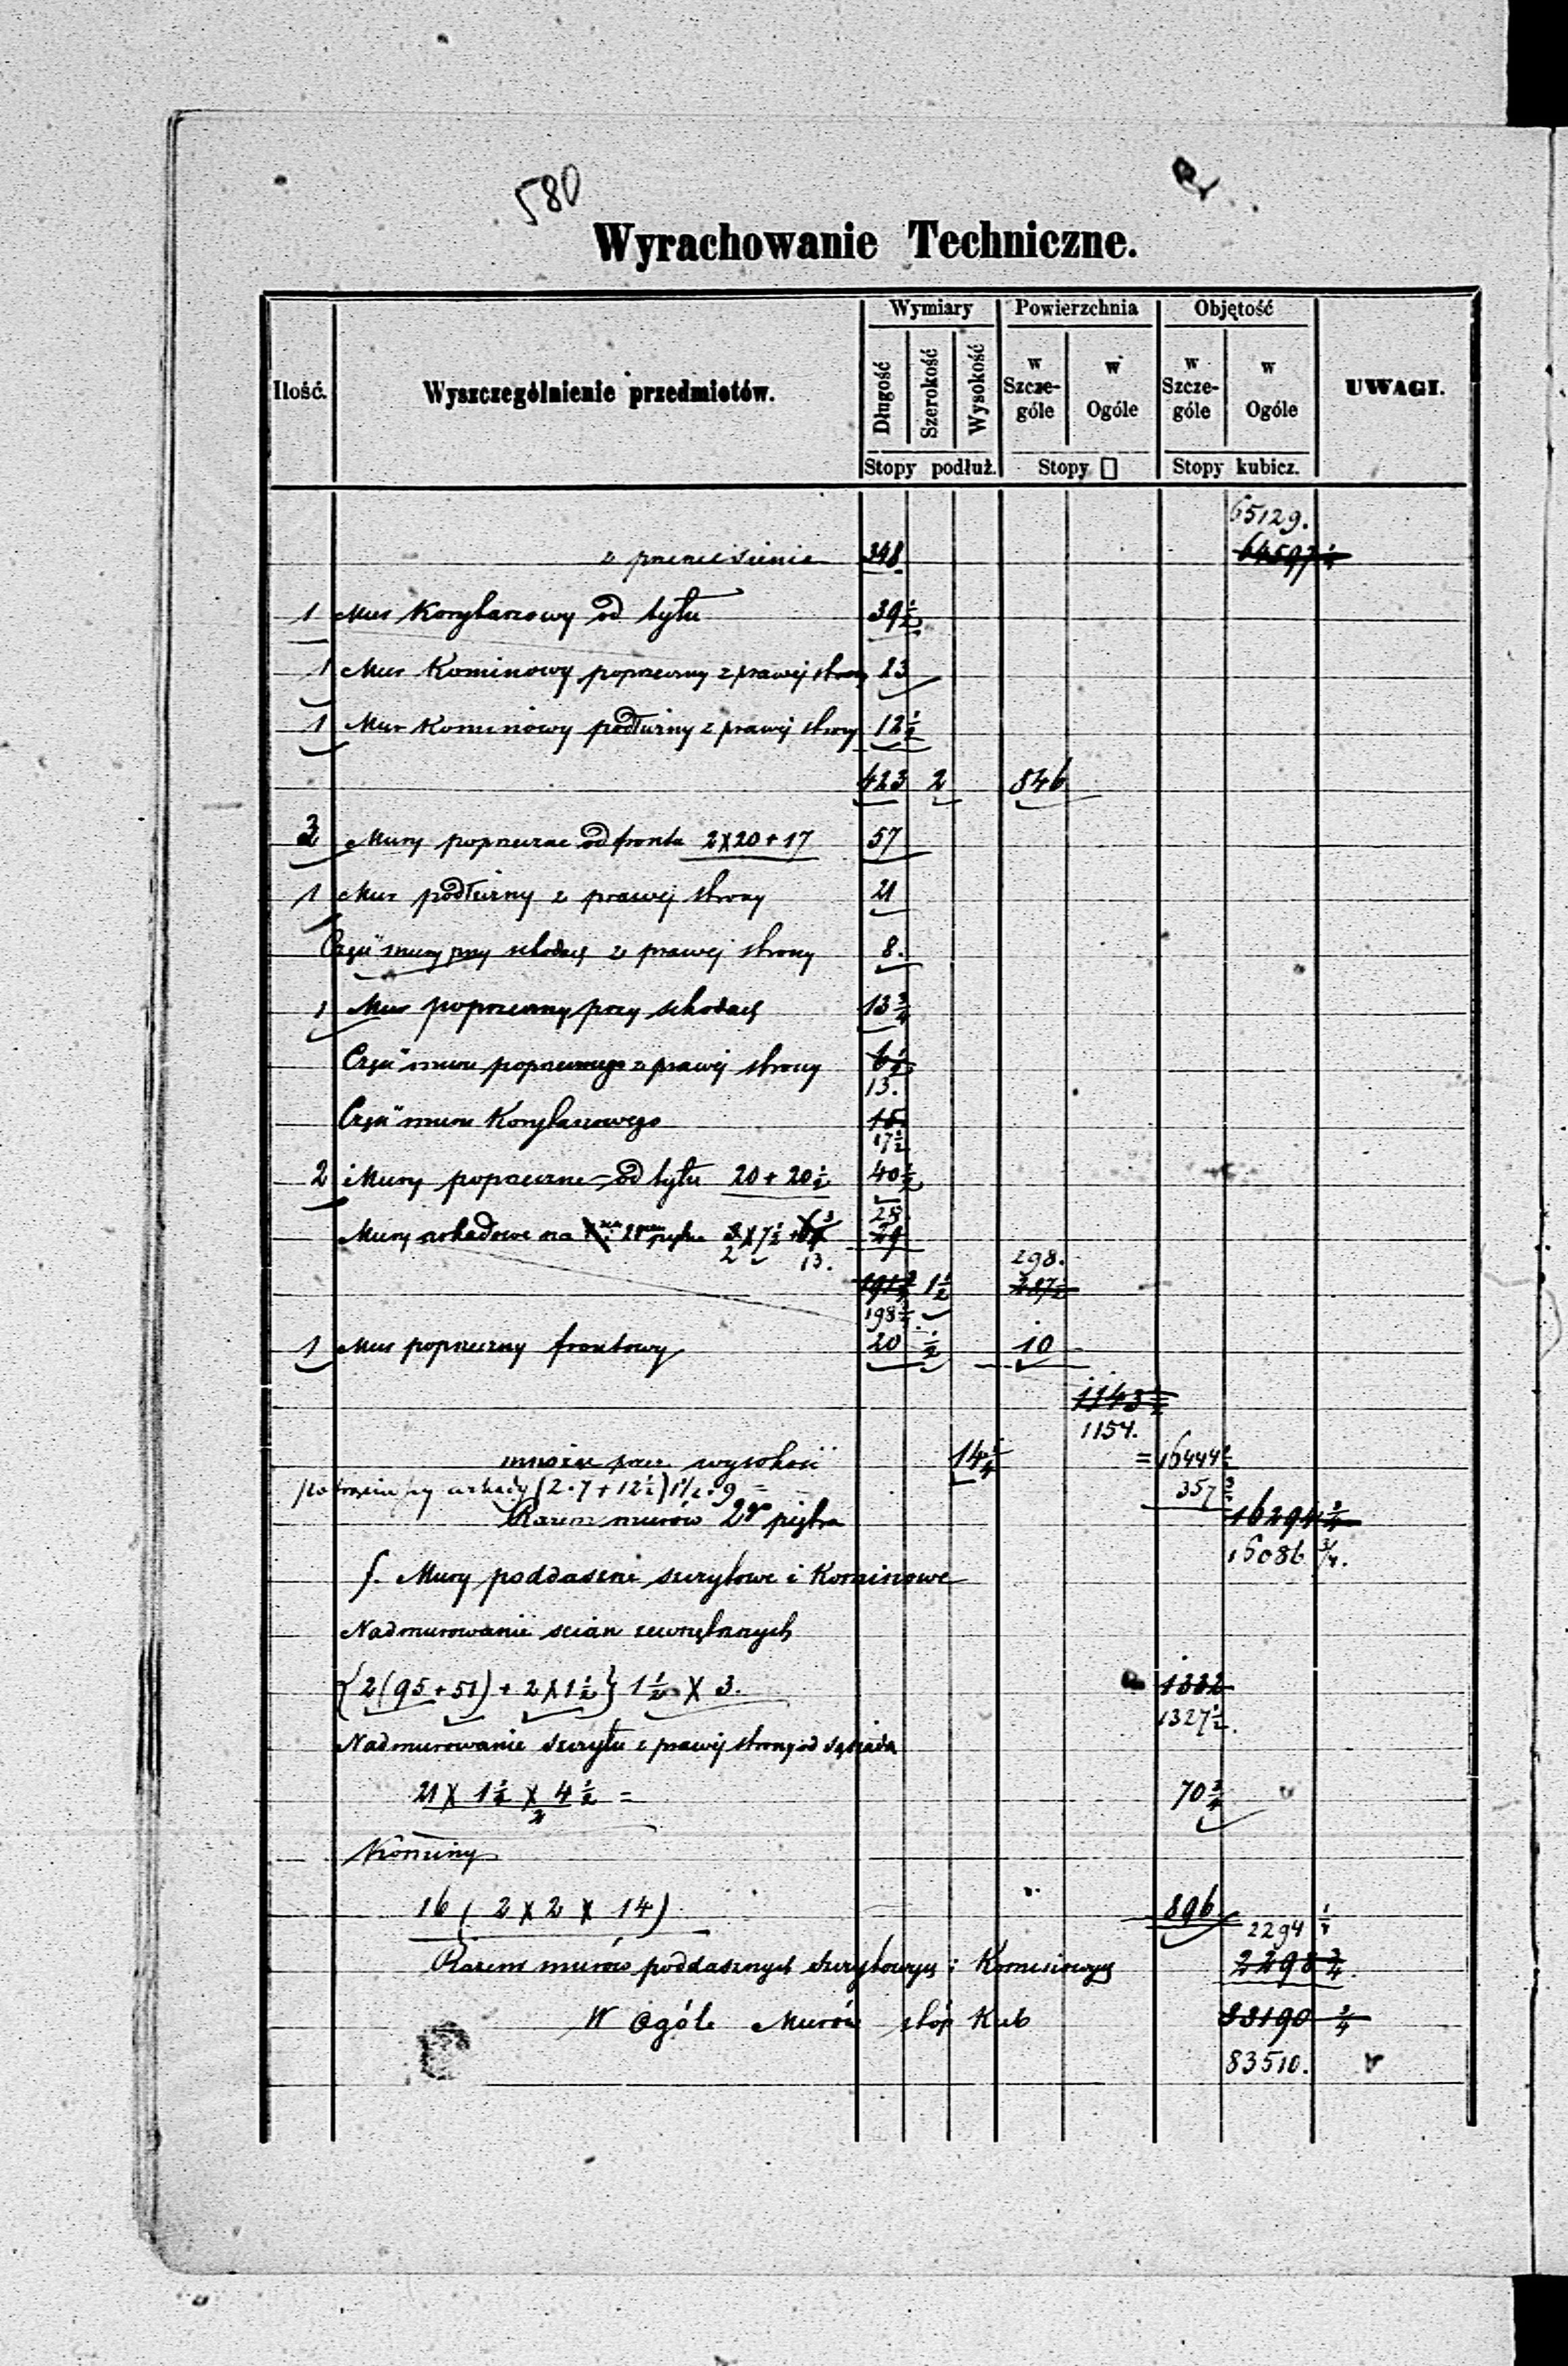 580
Wyrachowanie Techniczne.
Ilość.
Wyszczególnienie przedmiotów.
Wymiary
Długość
Szerokość
Wysokość
Stopy podłuż.
Powierzchnia
w Szcze-góle
w Ogóle
Stopy □
Objętość
w Szcze-góle
w Ogóle
Stopy kubicz.
UWAGI.
65129.
z przeniesienia 348 64597 1/4
1 Mur Korytarzowy od tyłu 39 1/2
1 Mur Kominowy poprzeczny z prawej strony 23
1 Mur Kominowy podłużny z prawej strony 12 1/2
423 2 846
3 Mury poprzeczne od frontu 2X20+17 57
1 Mur podłużny z prawej strony 21
Część muru przy schodach z prawej strony 8.
1 Mur poprzeczny przy schodach 13 3/4
Część muru poprzecznego z prawej strony 6 1/2
13.
Część muru Korytarzowego 15
17 1/2
2 Mury poprzeczne od tyłu 20 + 20 1/2 40 1/2
28.
Mury arkadowe na piętrze 3X7 1/2 29
2 13. 298.
191 3/4 1 1/2 287 1/2
198 3/4
1 Mur poprzeczny frontowy 20 1/2 10
1143 1/2
1154.
mnożąc przez wysokość 14 1/4 = 16444 1/2
potrącając arkady (2·7+12 1/2) 1 1/2·9 = 357 3/4
Razem murów 2go piętra 16294 3/4
16086 3/4.
f. Mury poddaszne szczytowe i Kominowe
Nadmurowanie ścian zewnętrznych
{2(95+51)+2X1 1/2} 1 1/2 X 3. 1332
1327 1/2.
Nadmurowanie szczytu z prawej strony od sąsiada
21 X 1 1/2 X 4 1/2 = 70 3/4
2
Kominy
16 ( 2 X 2 X 14) 896
2294 1/4
Razem murów poddasznych szczytowych i Kominowych 2298 3/4
W Ogóle Murów stóp Kub 83190 3/4
83510.